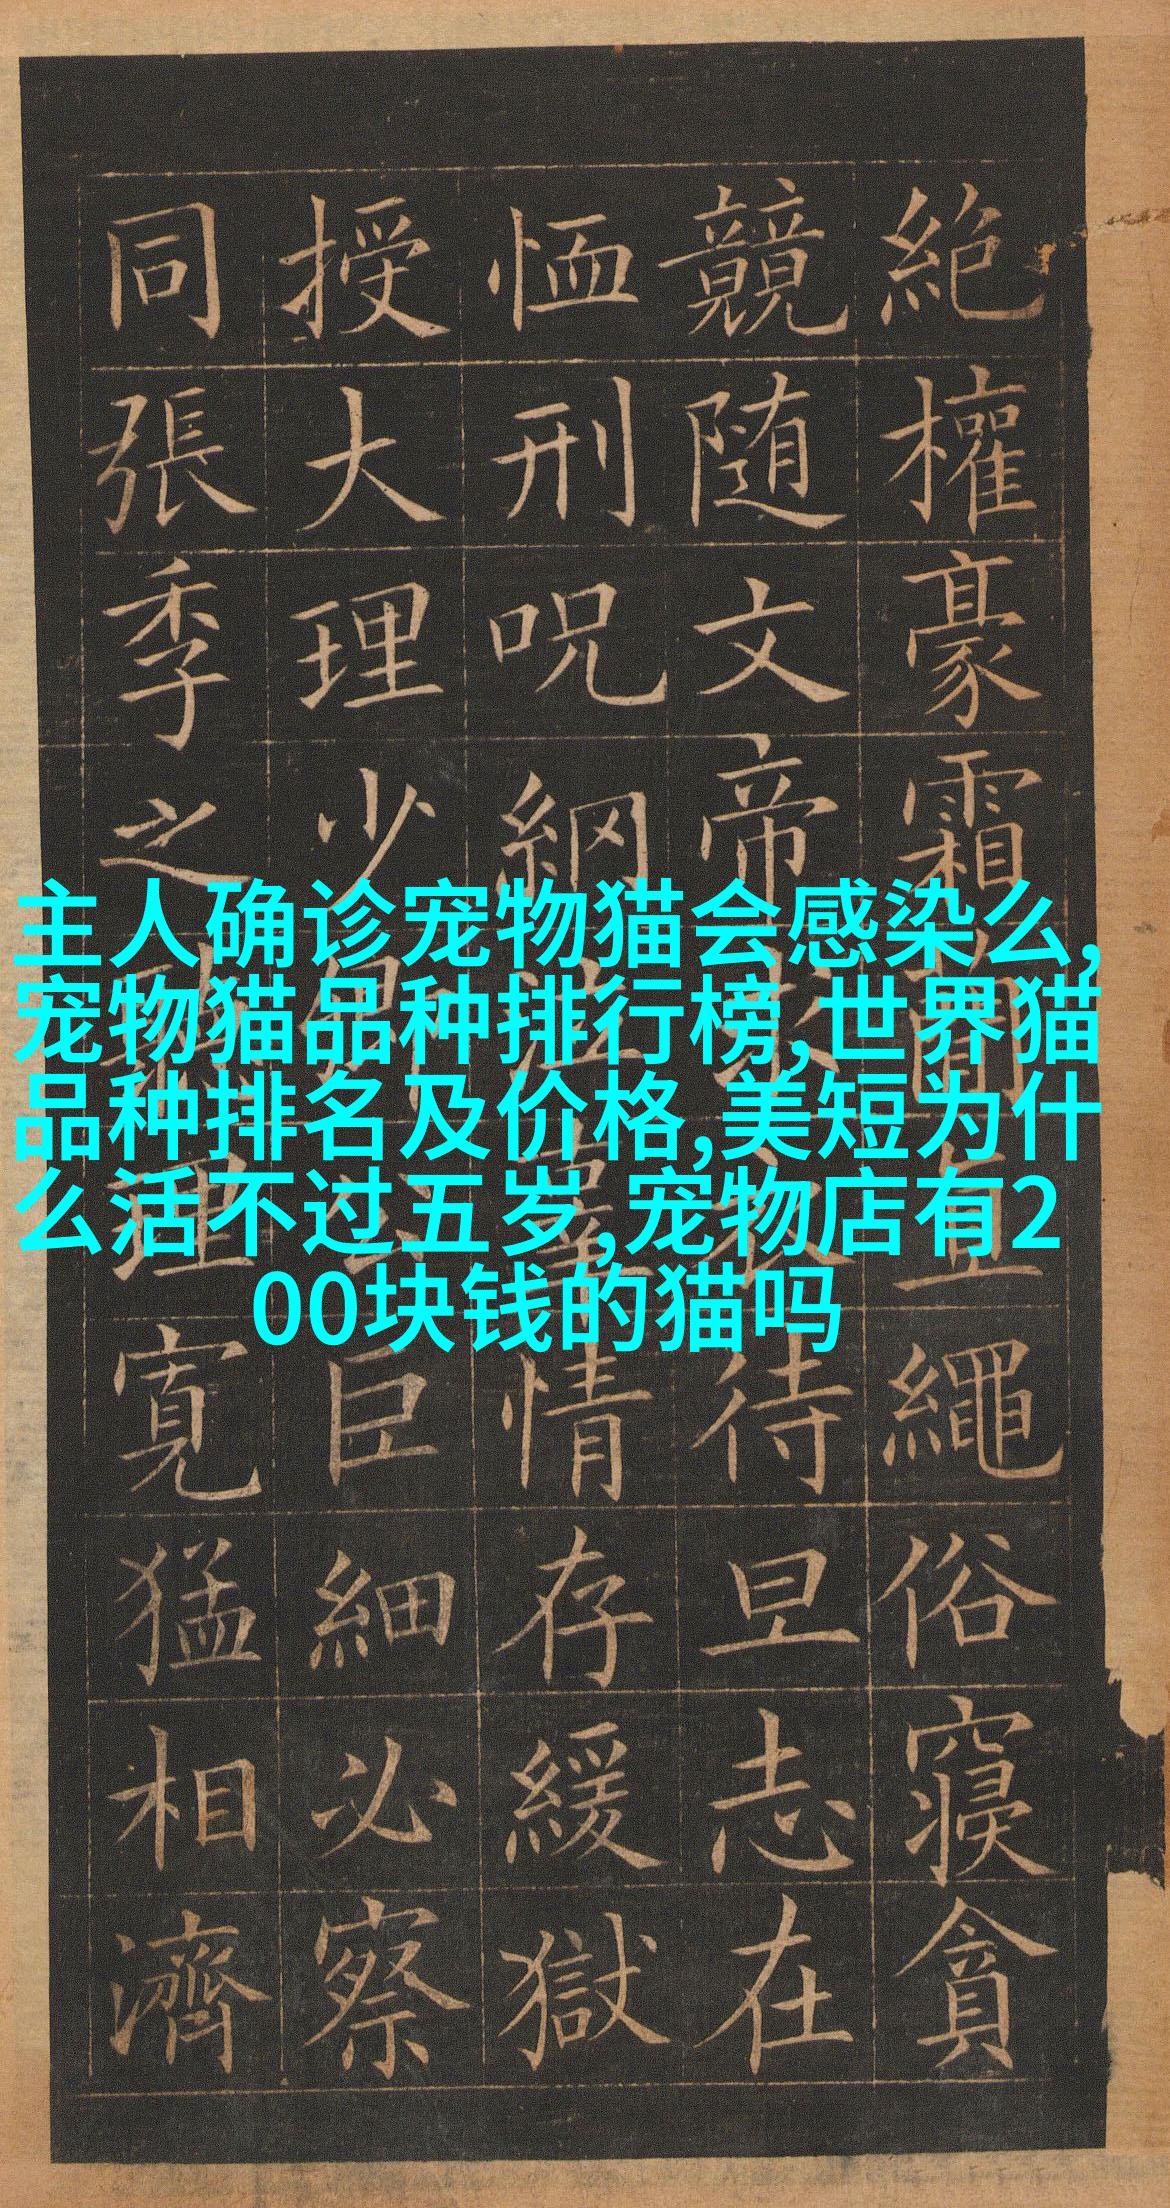 絶權豪霜簡直繩俗寢貪
競随文帝求衣待旦志在
恤刑呪網泣辜情存緩獄
授大理少卿公巨細必察
同張季之聽理寛猛相濟
主人确诊宠物猫会感染么,
宠物猫品种排行榜,世界猫
品种排名及价格,美短为什
么活不过五岁,宠物店有2
00块钱的猫吗